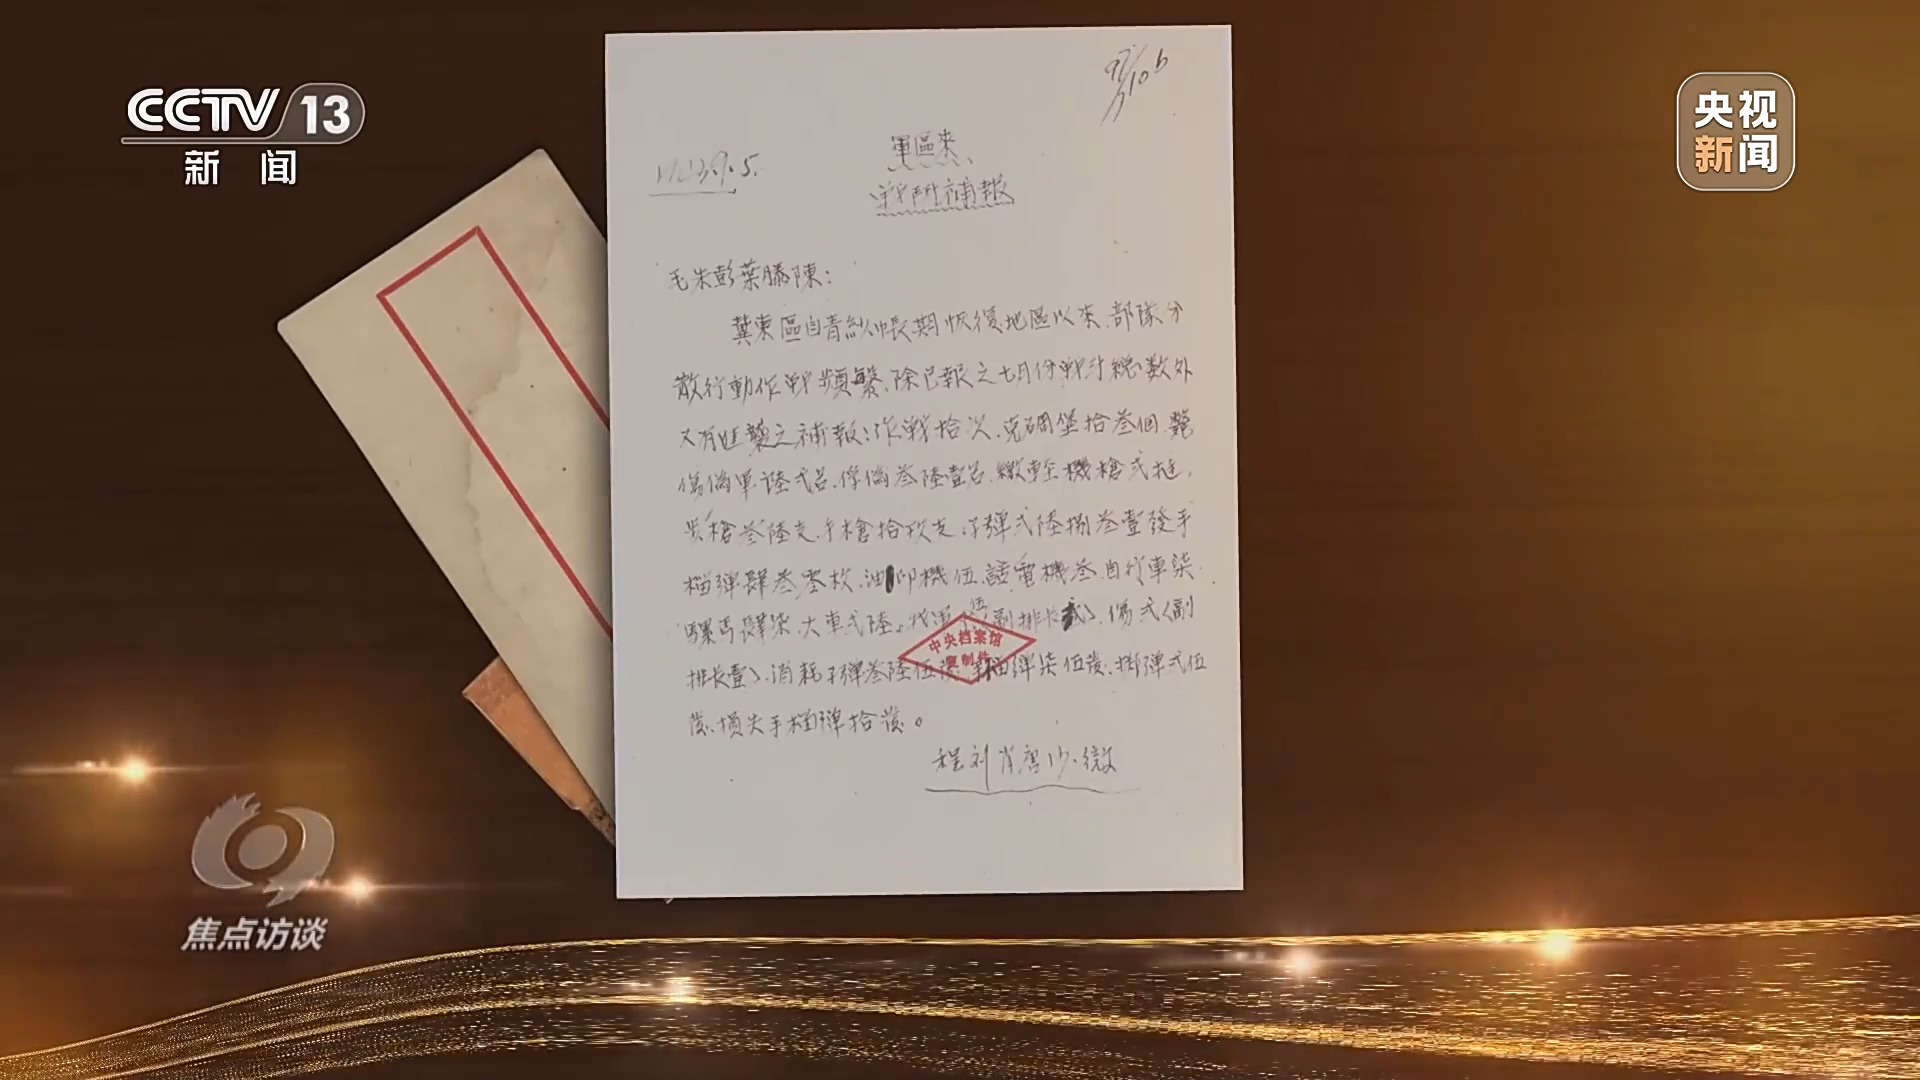 CCTV 13
新闻
央视
新闻
軍區來
戰鬥補報
毛朱彭葉滕陳：
冀東區自青紗帳期恢復地區以來、部隊分
散行動作戰頻繁、除已報之七月份戰斗總數外
又有 之補報：作戰拾次、克碉堡拾叁個、斃
傷偽軍陸弍名、俘偽叁陸壹名、繳輕機槍弍挺、
步槍叁陸支、手槍拾玖支、子彈弍陸捌叁壹發手
榴彈肆叁零枚、油印機伍、話電機叁、自行車柒、
騾馬肆柒、大車弍陸。我軍 伍 副排長 、傷弍（副
排長壹）、消耗子彈叁陸伍 榴彈柒伍發、擲彈弍伍
發、損失手榴彈拾發。
中央档案馆
复制件
程刘肖 沙·
焦点访谈